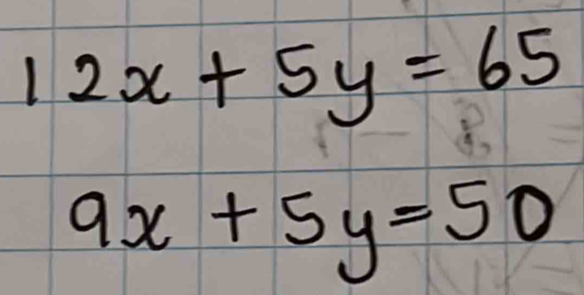 12x + 5y = 65
9x + 5y = 50